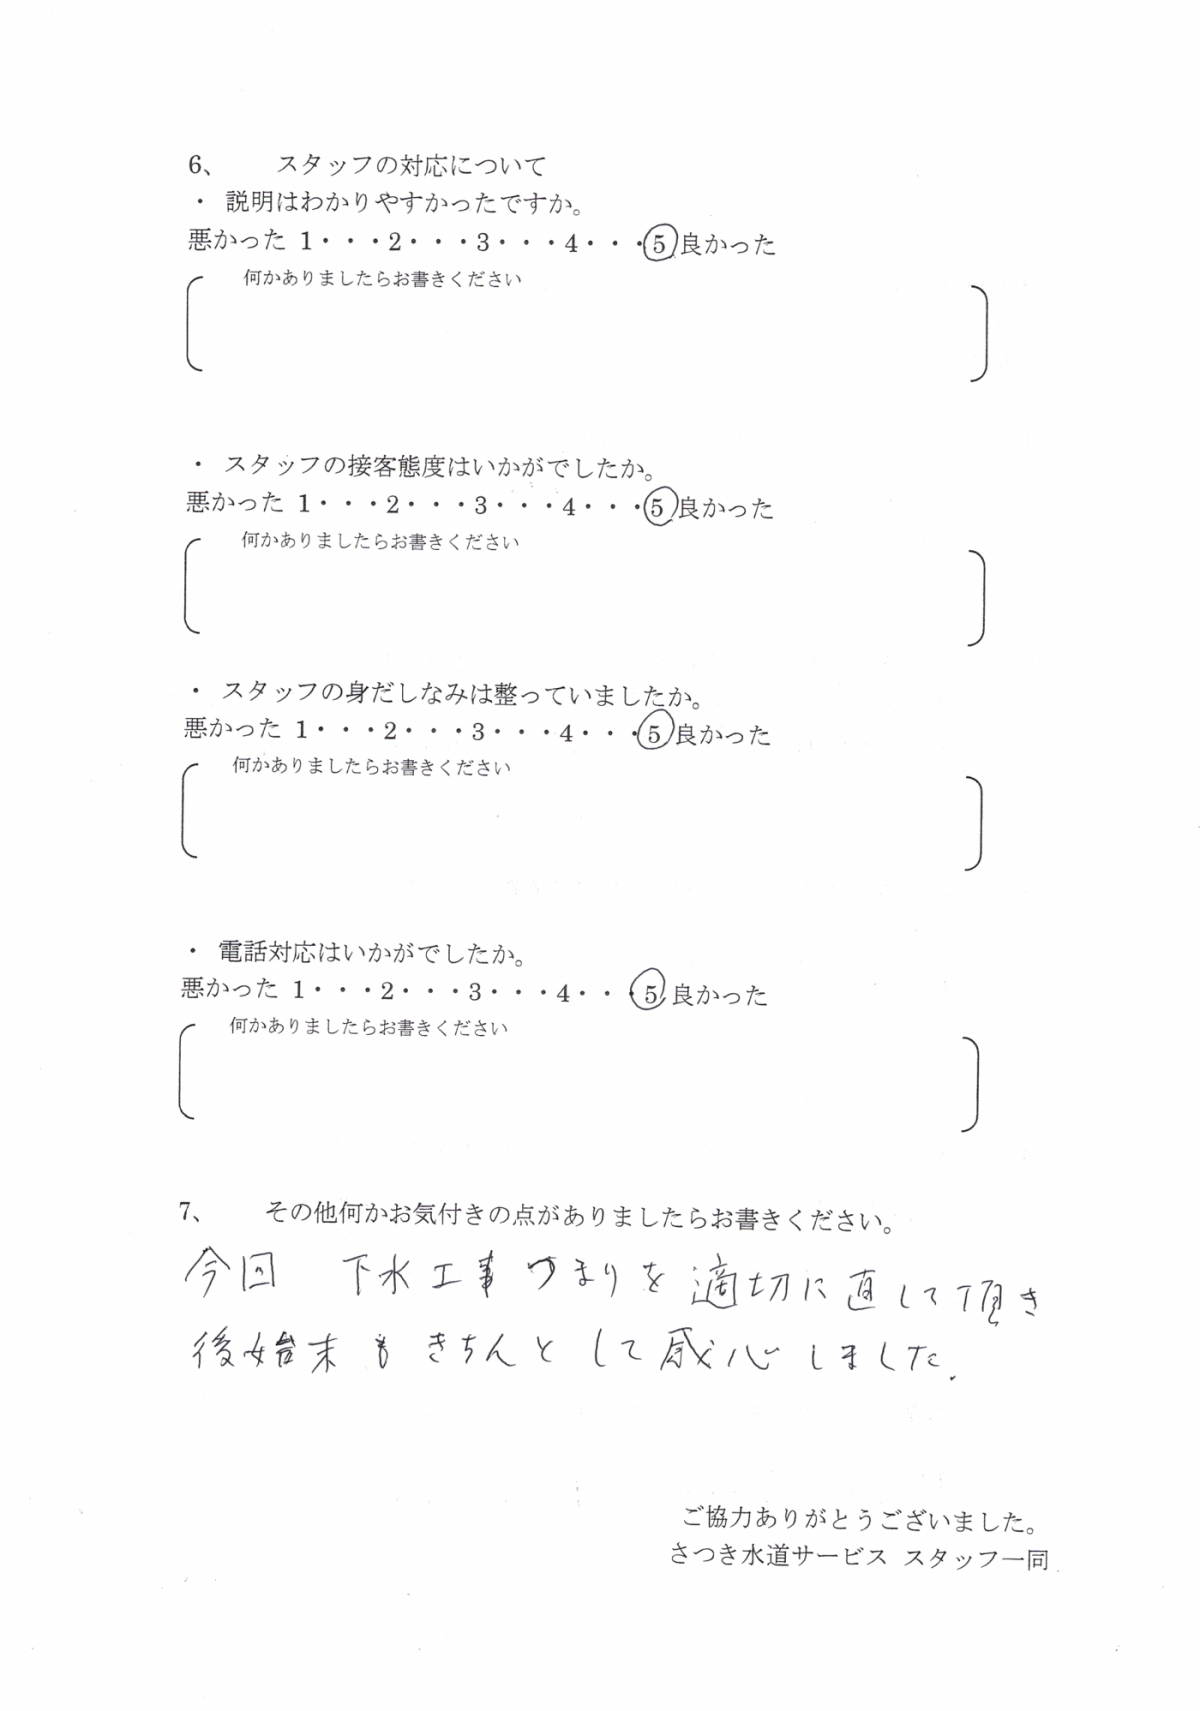 6、 スタッフの対応について
・ 説明はわかりやすかったですか。
悪かった 1・・・2・・・3・・・4・・・5 良かった
何かありましたらお書きください
・ スタッフの接客態度はいかがでしたか。
悪かった 1・・・2・・・3・・・4・・・5 良かった
何かありましたらお書きください
・ スタッフの身だしなみは整っていましたか。
悪かった 1・・・2・・・3・・・4・・・5 良かった
何かありましたらお書きください
・ 電話対応はいかがでしたか。
悪かった 1・・・2・・・3・・・4・・・5 良かった
何かありましたらお書きください
7、 その他何かお気付きの点がありましたらお書きください。
今回 下水工事つまりを適切に直して頂き
後始末もきちんとして感心しました.
ご協力ありがとうございました。
さつき水道サービス スタッフ一同